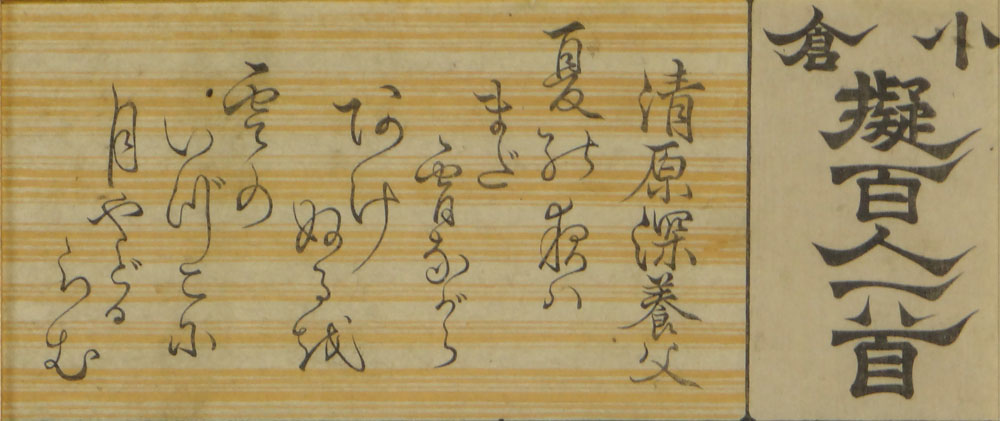 小倉
擬百人一首
清原深養父
夏の夜は
まだ
宵ながら
あけ
ぬるを
雲の
いづこに
月
やどる
らむ